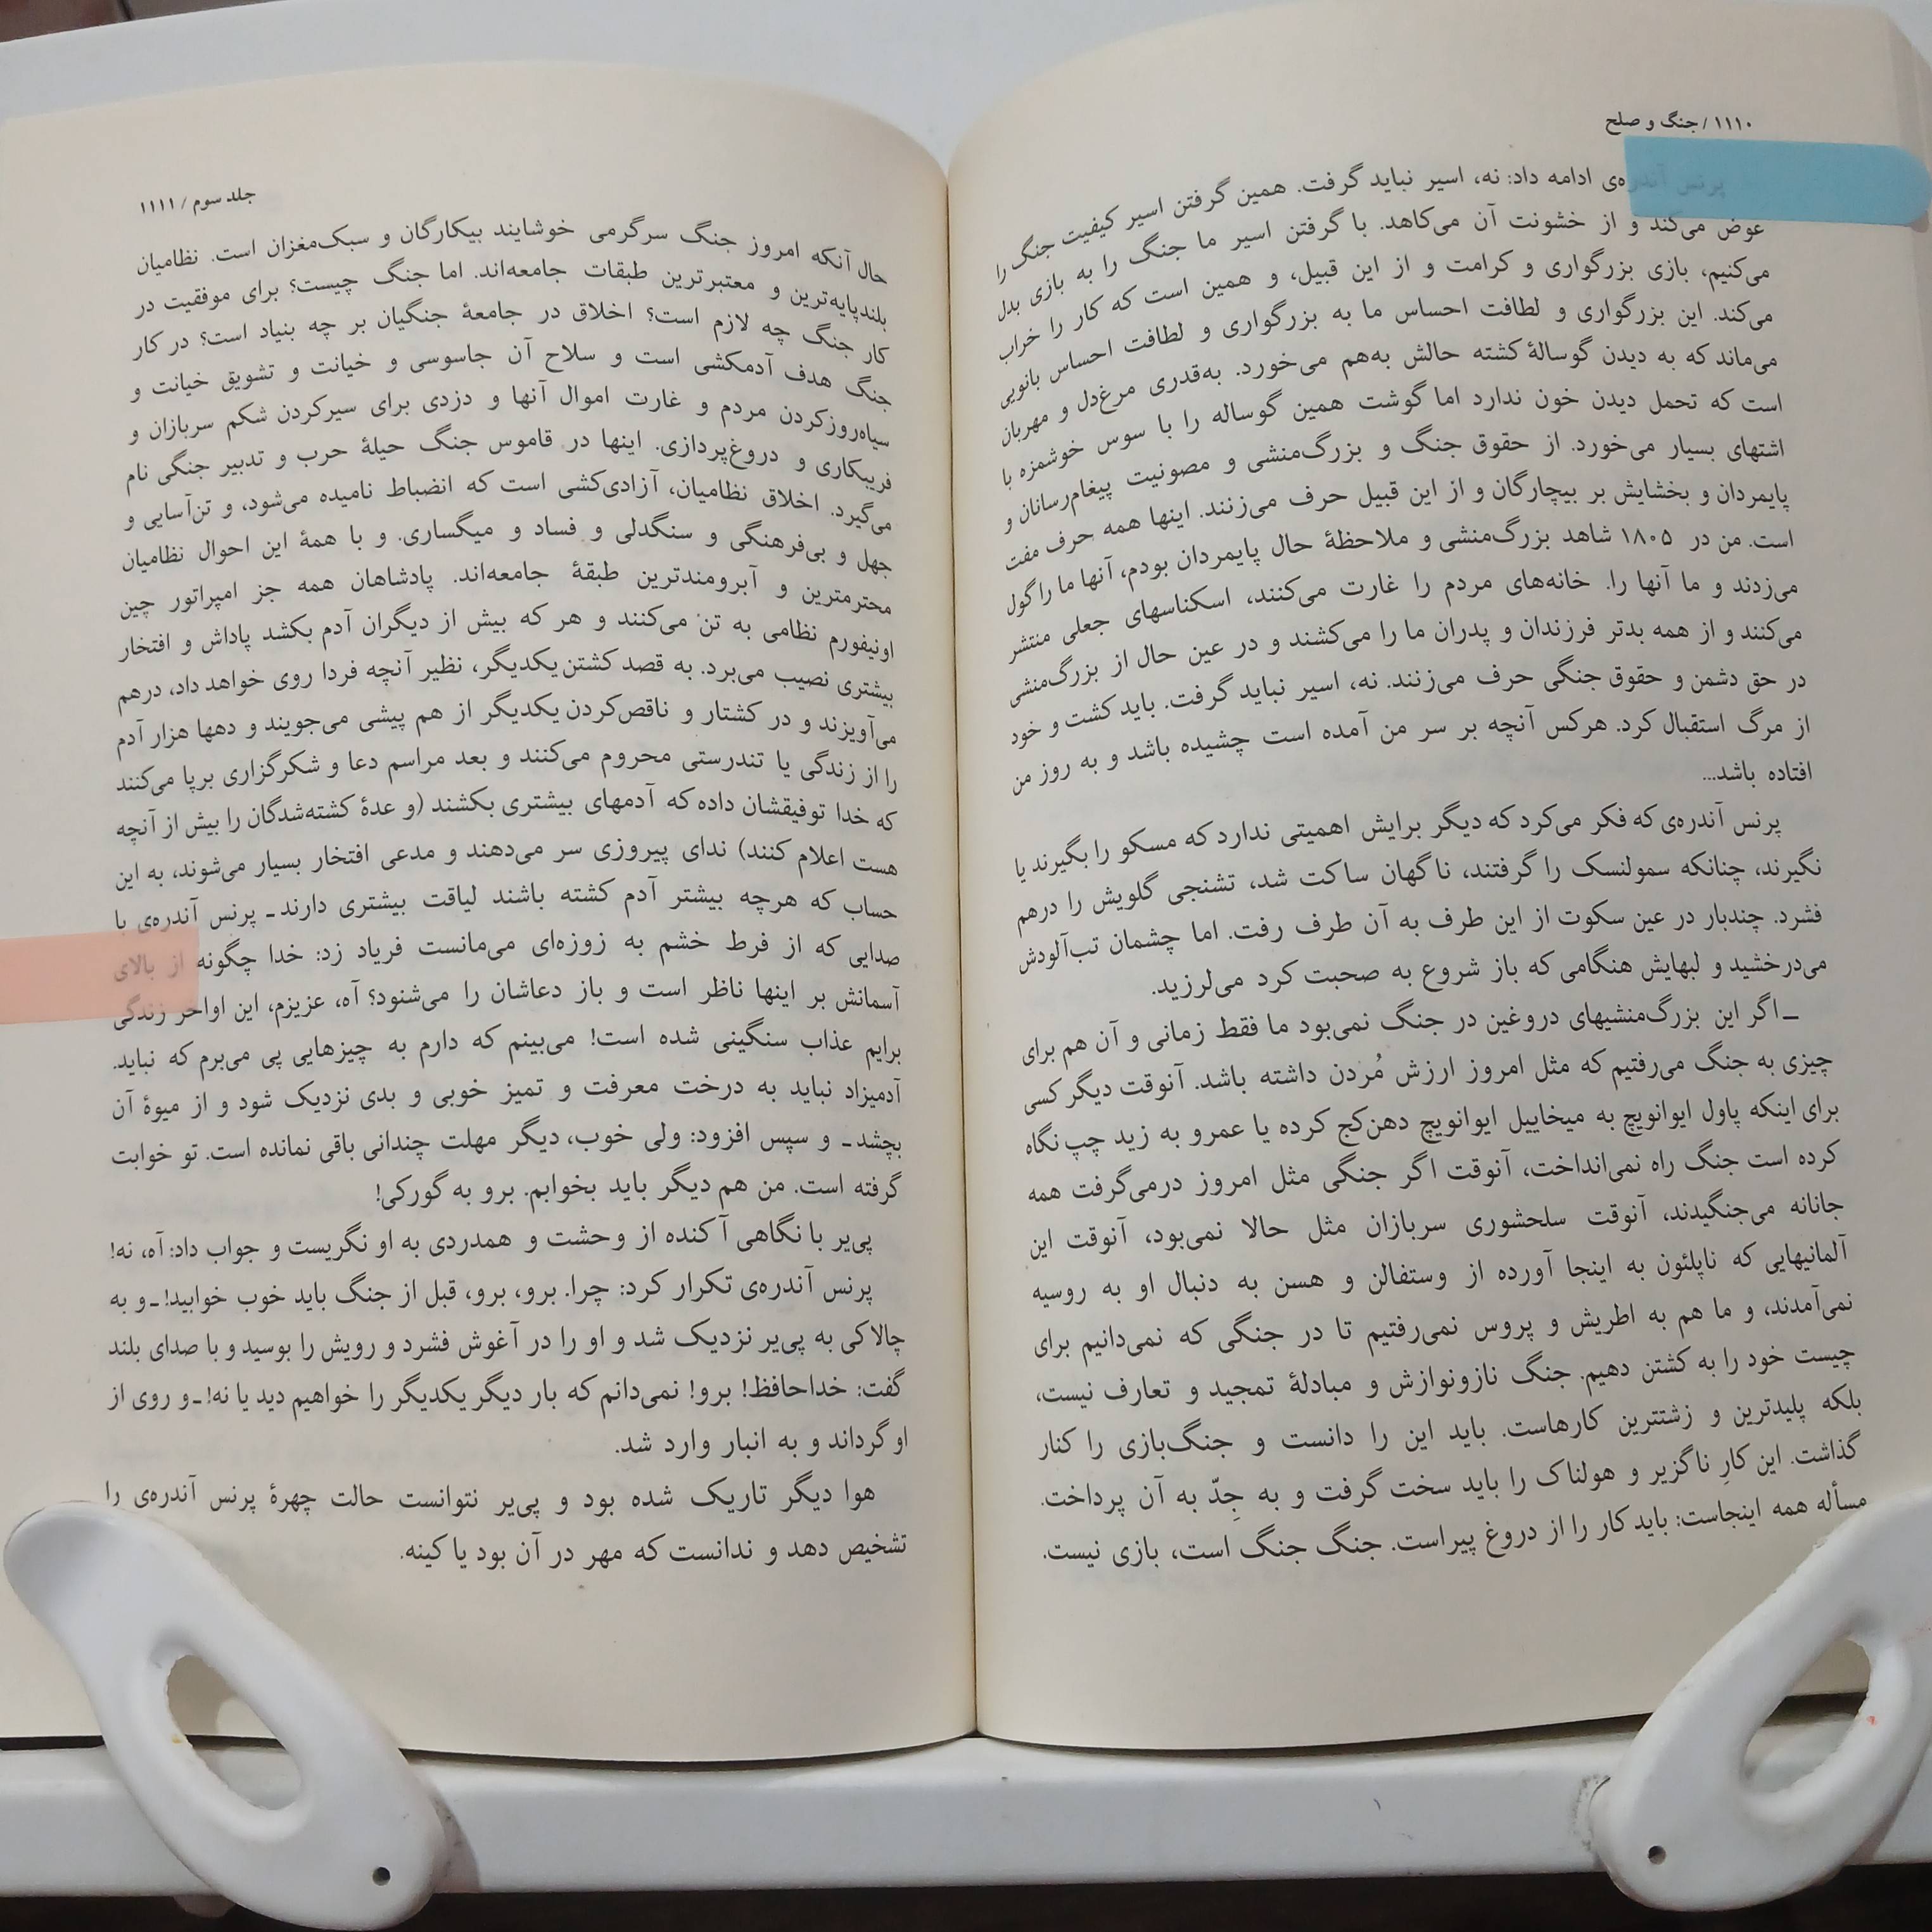 ۱۱۱۰ / جنگ و صلح
پرنس آندره‌ی ادامه داد: نه، اسیر نباید گرفت. همین گرفتن اسیر کیفیت جنگ را
عوض می‌کند و از خشونت آن می‌کاهد. با گرفتن اسیر ما جنگ را به بازی بدل
می‌کنیم، بازی بزرگواری و کرامت و از این قبیل، و همین است که کار را خراب
می‌کند. این بزرگواری و لطافت احساس ما به بزرگواری و لطافت احساس بانویی
می‌ماند که به دیدن گوسالهٔ کشته حالش به‌هم می‌خورد. به‌قدری مرغ‌دل و مهربان
است که تحمل دیدن خون ندارد اما گوشت همین گوساله را با سوس خوشمزه با
اشتهای بسیار می‌خورد. از حقوق جنگ و بزرگ‌منشی و مصونیت پیغام‌رسانان و
پایمردان و بخشایش بر بیچارگان و از این قبیل حرف می‌زنند. اینها همه حرف مفت
است. من در ۱۸۰۵ شاهد بزرگ‌منشی و ملاحظهٔ حال پایمردان بودم، آنها ما را گول
می‌زدند و ما آنها را. خانه‌های مردم را غارت می‌کنند، اسکناسهای جعلی منتشر
می‌کنند و از همه بدتر فرزندان و پدران ما را می‌کشند و در عین حال از بزرگ‌منشی
در حق دشمن و حقوق جنگی حرف می‌زنند. نه، اسیر نباید گرفت. باید کشت و خود
از مرگ استقبال کرد. هرکس آنچه بر سر من آمده است چشیده باشد و به روز من
افتاده باشد...
پرنس آندره‌ی که فکر می‌کرد که دیگر برایش اهمیتی ندارد که مسکو را بگیرند یا
نگیرند، چنانکه سمولنسک را گرفتند، ناگهان ساکت شد، تشنجی گلویش را درهم
فشرد. چندبار در عین سکوت از این طرف به آن طرف رفت. اما چشمان تب‌آلودش
می‌درخشید و لبهایش هنگامی که باز شروع به صحبت کرد می‌لرزید.
ـ اگر این بزرگ‌منشیهای دروغین در جنگ نمی‌بود ما فقط زمانی و آن هم برای
چیزی به جنگ می‌رفتیم که مثل امروز ارزش مُردن داشته باشد. آنوقت دیگر کسی
برای اینکه پاول ایوانویچ به میخاییل ایوانویچ دهن‌کج کرده یا عمرو به زید چپ نگاه
کرده است جنگ راه نمی‌انداخت، آنوقت اگر جنگی مثل امروز درمی‌گرفت همه
جانانه می‌جنگیدند، آنوقت سلحشوری سربازان مثل حالا نمی‌بود، آنوقت این
آلمانیهایی که ناپلئون به اینجا آورده از وستفالن و هسن به دنبال او به روسیه
نمی‌آمدند، و ما هم به اطریش و پروس نمی‌رفتیم تا در جنگی که نمی‌دانیم برای
چیست خود را به کشتن دهیم. جنگ نازونوازش و مبادلهٔ تمجید و تعارف نیست،
بلکه پلیدترین و زشتترین کارهاست. باید این را دانست و جنگ‌بازی را کنار
گذاشت. این کارِ ناگزیر و هولناک را باید سخت گرفت و به جِدّ به آن پرداخت.
مسأله همه اینجاست: باید کار را از دروغ پیراست. جنگ جنگ است، بازی نیست.
جلد سوم / ۱۱۱۱
حال آنکه امروز جنگ سرگرمی خوشایند بیکارگان و سبک‌مغزان است. نظامیان
بلندپایه‌ترین و معتبرترین طبقات جامعه‌اند. اما جنگ چیست؟ برای موفقیت در
کار جنگ چه لازم است؟ اخلاق در جامعهٔ جنگیان بر چه بنیاد است؟ در کار
جنگ هدف آدمکشی است و سلاح آن جاسوسی و خیانت و تشویق خیانت و
سیاه‌روزکردن مردم و غارت اموال آنها و دزدی برای سیرکردن شکم سربازان و
فریبکاری و دروغ‌پردازی. اینها در قاموس جنگ حیلهٔ حرب و تدبیر جنگی نام
می‌گیرد. اخلاق نظامیان، آزادی‌کشی است که انضباط نامیده می‌شود، و تن‌آسایی و
جهل و بی‌فرهنگی و سنگدلی و فساد و میگساری. و با همهٔ این احوال نظامیان
محترمترین و آبرومندترین طبقهٔ جامعه‌اند. پادشاهان همه جز امپراتور چین
اونیفورم نظامی به تن می‌کنند و هر که بیش از دیگران آدم بکشد پاداش و افتخار
بیشتری نصیب می‌برد. به قصد کشتن یکدیگر، نظیر آنچه فردا روی خواهد داد، درهم
می‌آویزند و در کشتار و ناقص‌کردن یکدیگر از هم پیشی می‌جویند و دهها هزار آدم
را از زندگی یا تندرستی محروم می‌کنند و بعد مراسم دعا و شکرگزاری برپا می‌کنند
که خدا توفیقشان داده که آدمهای بیشتری بکشند (و عدهٔ کشته‌شدگان را بیش از آنچه
هست اعلام کنند) ندای پیروزی سر می‌دهند و مدعی افتخار بسیار می‌شوند، به این
حساب که هرچه بیشتر آدم کشته باشند لیاقت بیشتری دارند ـ پرنس آندره‌ی با
صدایی که از فرط خشم به زوزه‌ای می‌مانست فریاد زد: خدا چگونه از بالای
آسمانش بر اینها ناظر است و باز دعاشان را می‌شنود؟ آه، عزیزم، این اواخر زندگی
برایم عذاب سنگینی شده است! می‌بینم که دارم به چیزهایی پی می‌برم که نباید.
آدمیزاد نباید به درخت معرفت و تمیز خوبی و بدی نزدیک شود و از میوهٔ آن
بچشد ـ و سپس افزود: ولی خوب، دیگر مهلت چندانی باقی نمانده است. تو خوابت
گرفته است. من هم دیگر باید بخوابم. برو به گورکی!
پی‌یر با نگاهی آکنده از وحشت و همدردی به او نگریست و جواب داد: آه، نه!
پرنس آندره‌ی تکرار کرد: چرا. برو، برو، قبل از جنگ باید خوب خوابید! ـ و به
چالاکی به پی‌یر نزدیک شد و او را در آغوش فشرد و رویش را بوسید و با صدای بلند
گفت: خداحافظ! برو! نمی‌دانم که بار دیگر یکدیگر را خواهیم دید یا نه! ـ و روی از
او گرداند و به انبار وارد شد.
هوا دیگر تاریک شده بود و پی‌یر نتوانست حالت چهرهٔ پرنس آندره‌ی را
تشخیص دهد و ندانست که مهر در آن بود یا کینه.